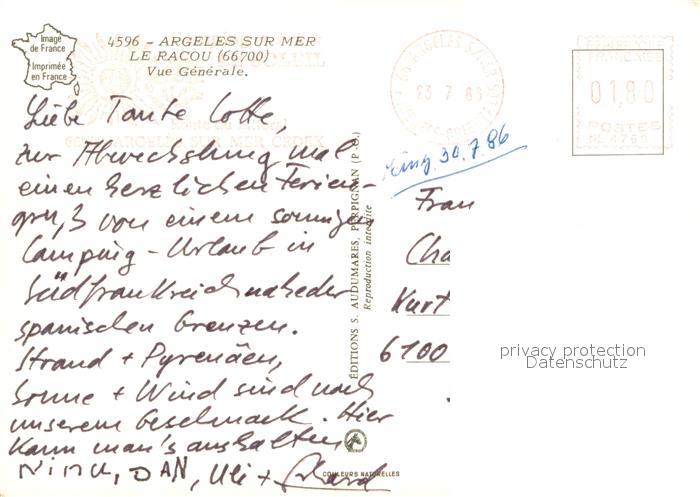 Image
de France
Imprimée
en France
4596 - ARGELES SUR MER
LE RACOU (66700)
Vue Générale.
Liebe Tante Lotte,
zur Abwechslung mal
einen herzlichen Ferien-
gruß von einem sonnigen
Camping-Urlaub in
Südfrankreich nahe der
spanischen Grenzen.
Strand + Pyrenäen,
Sonne + Wind sind nach
unserem Geschmack. Hier
kann man's aushalten
NINA, DAN, Uli +
ÉDITIONS S. AUDUMARES, PERPIGNAN (P.-O.)
Reproduction interdite
COULEURS NATURELLES
23 7 86
RÉPUBLIQUE
FRANÇAISE
01,80
POSTES
30.7.86
Frau
Cha
Kurt
6100
privacy protection
Datenschutz